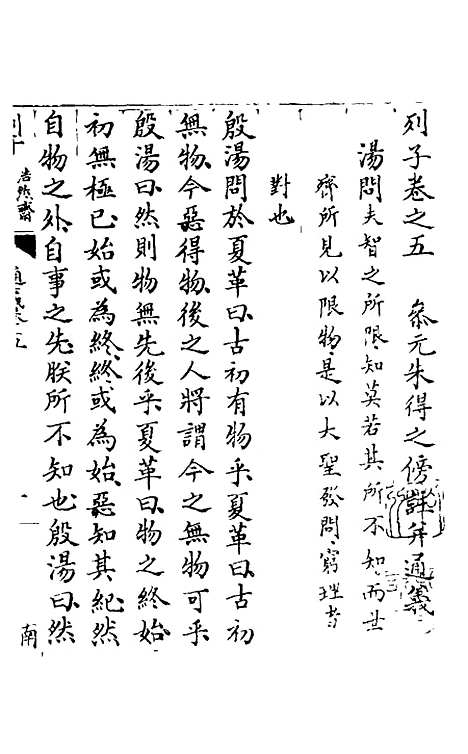 列子卷之五　叅元朱得之傍註并通義
湯問夫智之所限知莫若其所不知而世
齊所見以限物是以大聖發問窮理者
對也
殷湯問於夏革曰古初有物乎夏革曰古初
無物今惡得物後之人將謂今之無物可乎
殷湯曰然則物無先後乎夏革曰物之終始
初無極已始或為終終或為始惡知其紀然
自物之外自事之先朕所不知也殷湯曰然
浩然齋
南